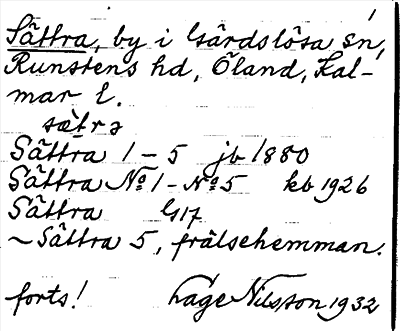 1
Sättra, by i Gärdslösa sn,
Runstens hd, Öland, Kal-
mar l.
sætrə
Sättra 1–5 jb 1880
Sättra No 1–No 5 kb 1926
Sättra G17
~Sättra 5, frälsehemman.
forts! Hage Nilsson 1932